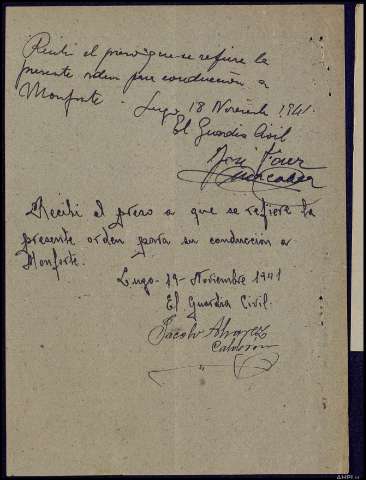 Recibi el preso a que se refiere la
presente orden para conducción a
Monforte. Lugo 18 Noviembre 1941.
El Guardia Civil
José
Recibi el preso a que se refiere la
presente orden para su conduccion a
Monforte.
Lugo - 19 - Noviembre 1941
El Guardia Civil.
Jacobo Alvarez
Calderon